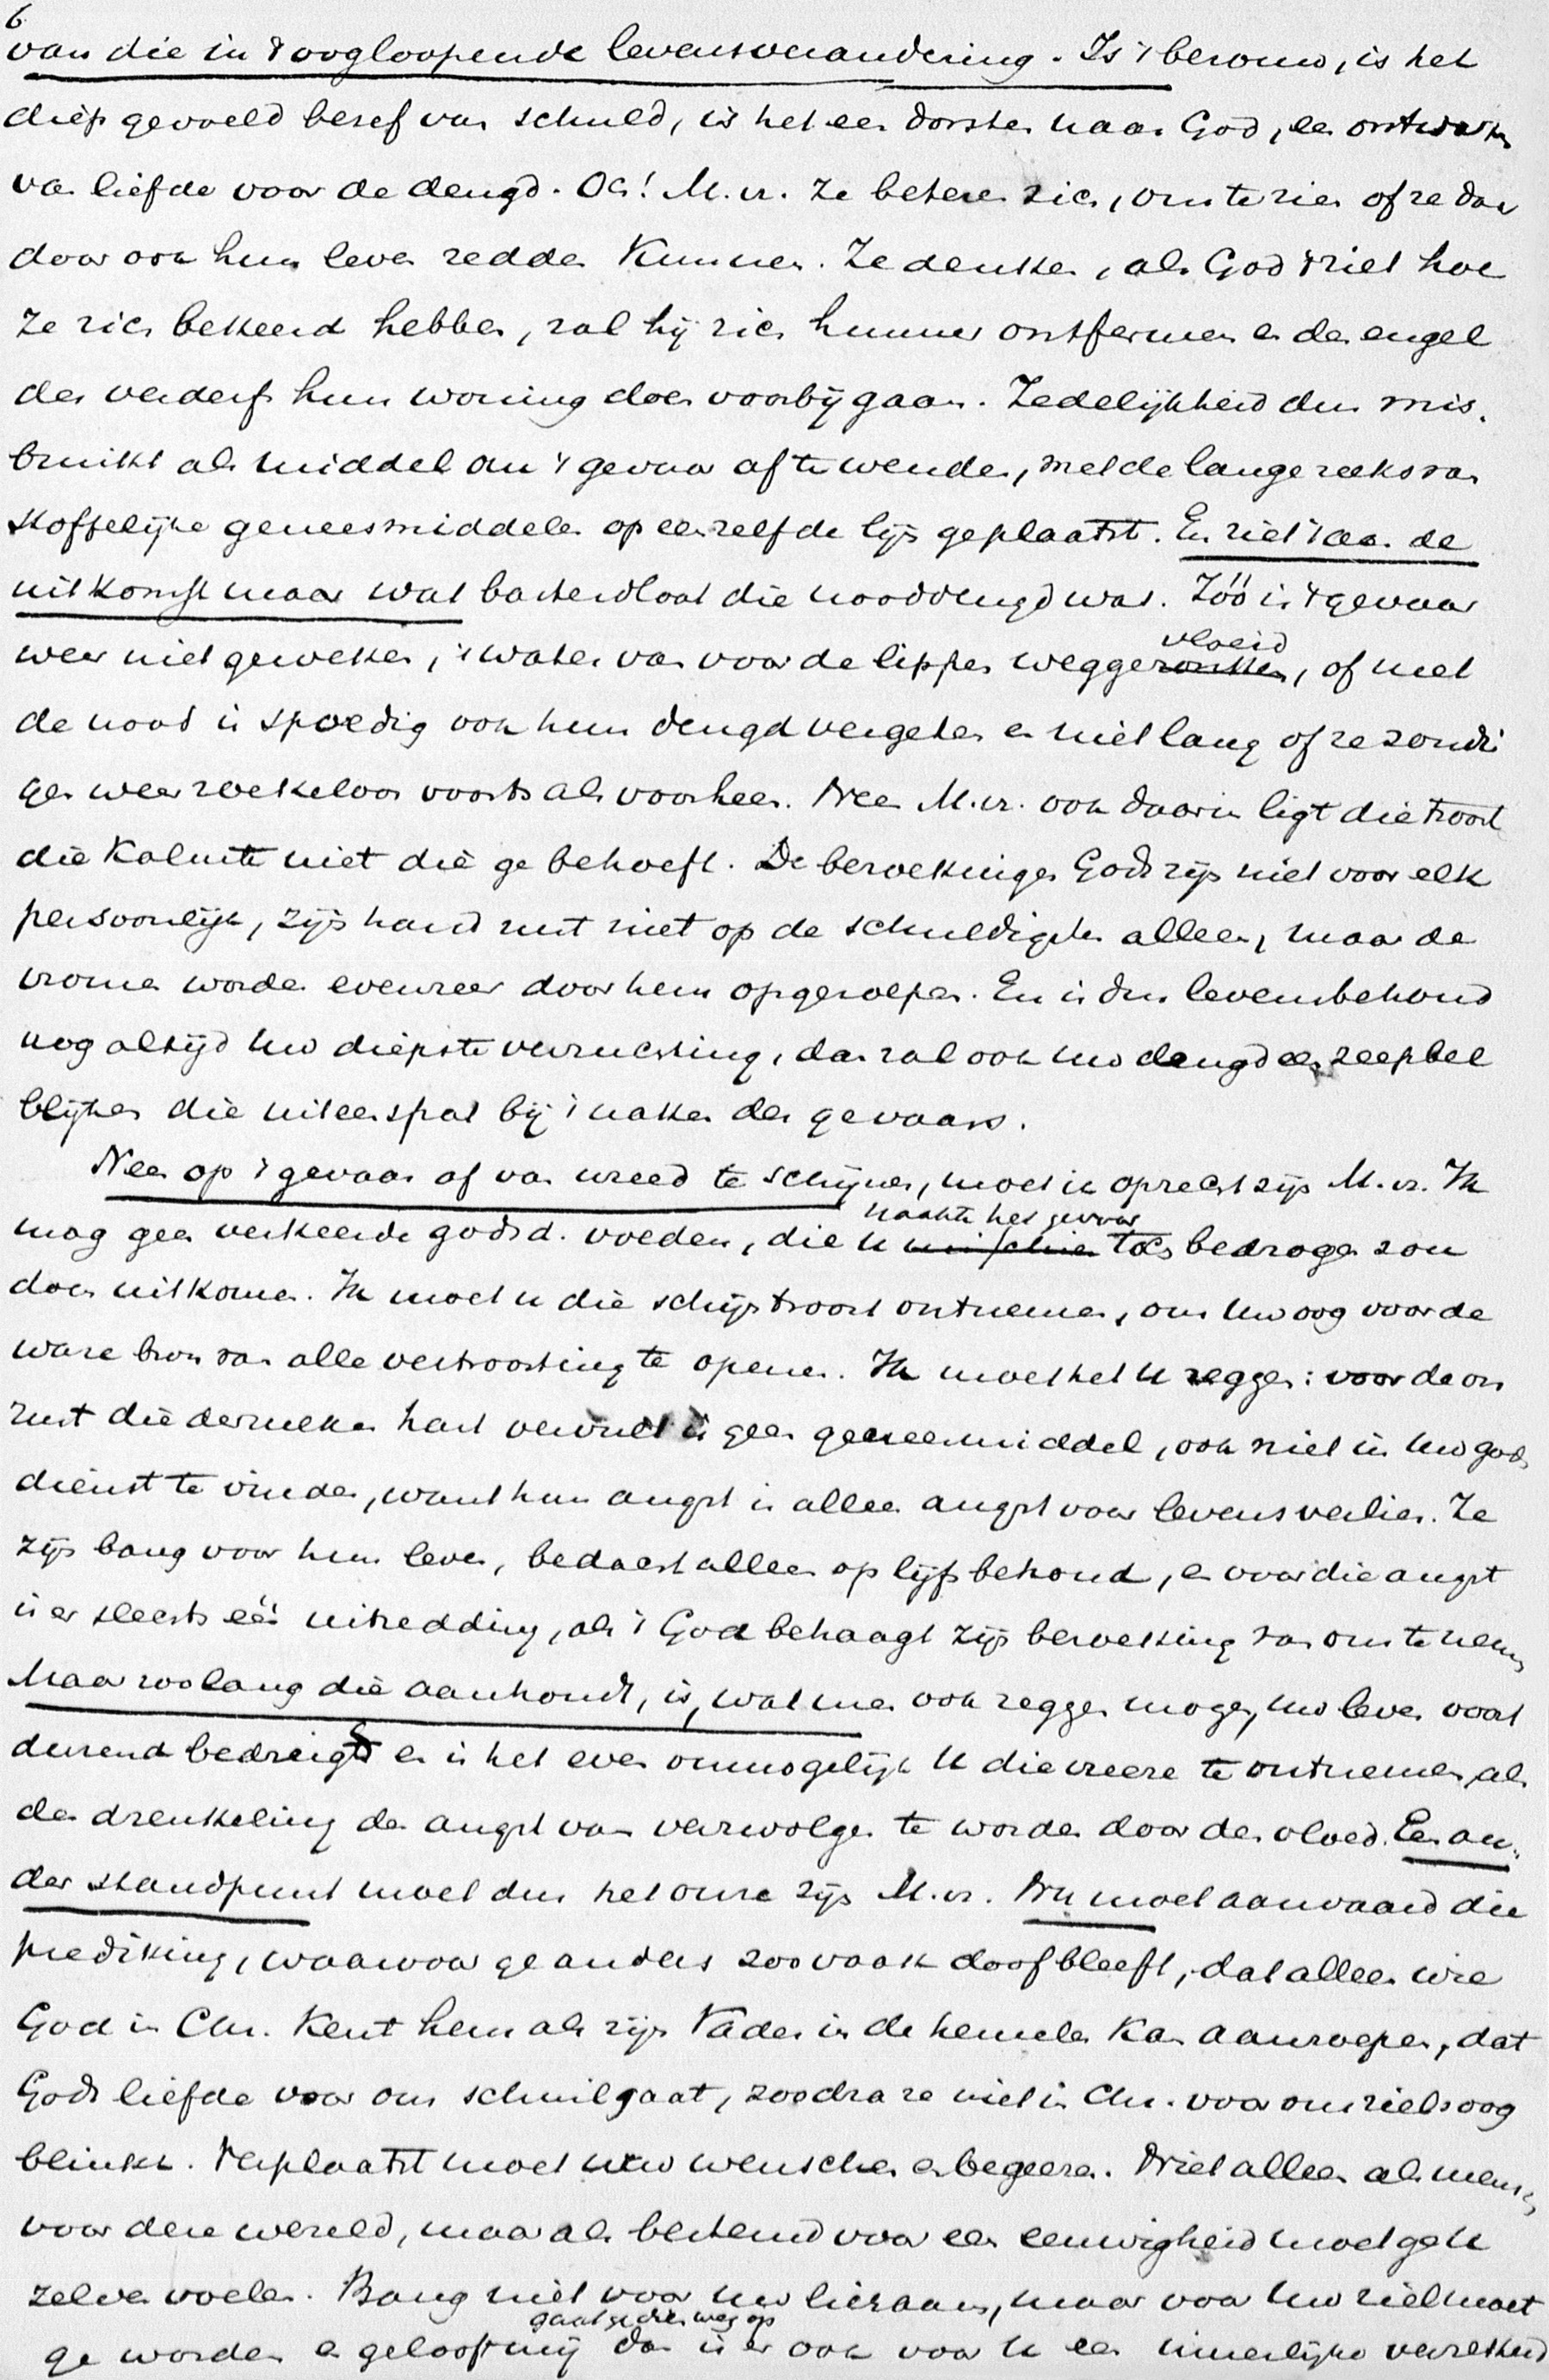 6
van die in 't oogloopende levensverandering. Is 't berouw, is het
diep gevoeld besef van schuld, is het een dorsten naar God, een ontwaken
van liefde voor de deugd. Och! M. vr. Ze bekeeren zich, om te zien of ze daar
door ook hun leven redden kunnen. Ze denken, als God 't ziet hoe
ze zich bekeerd hebben, zal hij zich hunner ontfermen en den engel
des verderfs hun woning doen voorbijgaan. Zedelijkheid dus mis-
bruikt als middel om 't gevaar af te wenden, met de lange reeks van
stoffelijke geneesmiddelen op eenzelfde lijn geplaatst. En ziet 't aan de
uitkomst maar wat basterdloot die nooddeugd was. Zóó is 't gevaar
weer niet geweken, 't water van voor de lippen weggevloeid, of met
de nood is spoedig ook hun deugd vergeten en niet lang of ze zondi
gen weer roekeloos voorts als voorheen. Neen M. vr. ook daarin ligt die troost
die kalmte niet die ge behoeft. De bezoekingen Gods zijn niet voor elk
persoonlijk, zijn hand rust niet op de schuldigsten alleen, maar de
vromen worden evenzeer door hem opgeroepen. En is dus levensbehoud
nog altijd uw diepste verzuchting, dan zal ook uw deugd een zeepbel
blijken die uiteenspat bij 't naken des gevaars.
Neen op 't gevaar af van wreed te schijnen, moet ik oprecht zijn M. vr. Ik
mag geen verkeerde godsd. voeden, die u naakte het gevaar toch bedrogen zou
doen uitkomen. Ik moet u die schijntroost ontnemen, om uw oog voor de
ware bron van alle vertroosting te openen. Ik moet het u zeggen: voor de on
rust die der zulken hart vervult is geen geneesmiddel, ook niet in uw gods
dienst te vinden, want hun angst is alleen angst voor levensverlies. Ze
zijn bang voor hun leven, bedacht alleen op lijfsbehoud, en voor die angst
is er slechts één uitredding, als 't God behaagt zijn bezoeking van ons te nemen
Maar zoolang die aanhoudt, is, wat men ook zeggen moge, uw leven voort
durend bedreigd en is het even onmogelijk u die vreeze te ontnemen, als
den drenkeling de angst van verzwolgen te worden door den vloed. Een an-
der standpunt moet dus het onze zijn M. vr. Nu moet aanvaard die
prediking, waarvoor ge anders zoo vaak doof bleeft, dat alleen wie
God in Chr. kent hem als zijn Vader in de hemelen kan aanroepen, dat
Gods liefde voor ons schuilgaat, zoodra ze niet in Chr. voor ons zielsoog
blinkt. Verplaatst moet uw wenschen en begeeren. Niet alleen als mensch
voor deze wereld, maar als bestemd voor een eeuwigheid moet ge u
zelven voelen. Bang niet voor uw lichaam, maar voor uw ziel moet
ge worden en gelooft mij gaat ge dien weg op dan is er ook voor u een innerlijke